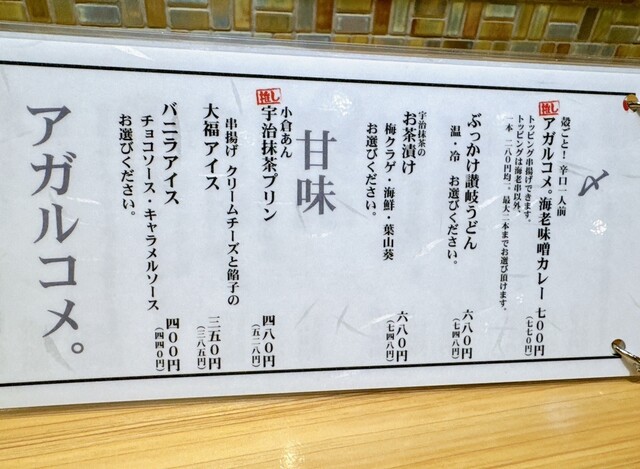 〆
殻ごと！辛口一人前
推し
アガルコメ。海老味噌カレー 七〇〇円
(七七〇円)
トッピング串揚げできます。
トッピングは海老串以外、
一本 二八〇円均一。最大二本までお選び頂けます。
ぶっかけ讃岐うどん 六八〇円
(七四八円)
温・冷 お選びください。
宇治抹茶の
お茶漬け 六八〇円
(七四八円)
梅クラゲ・海鮮・葉山葵
お選びください。
甘味
小倉あん
推し
宇治抹茶プリン 四八〇円
(五二八円)
大福アイス 三五〇円
(三八五円)
串揚げ クリームチーズと餡子の
バニラアイス 四〇〇円
(四四〇円)
チョコソース・キャラメルソース
お選びください。
アガルコメ。